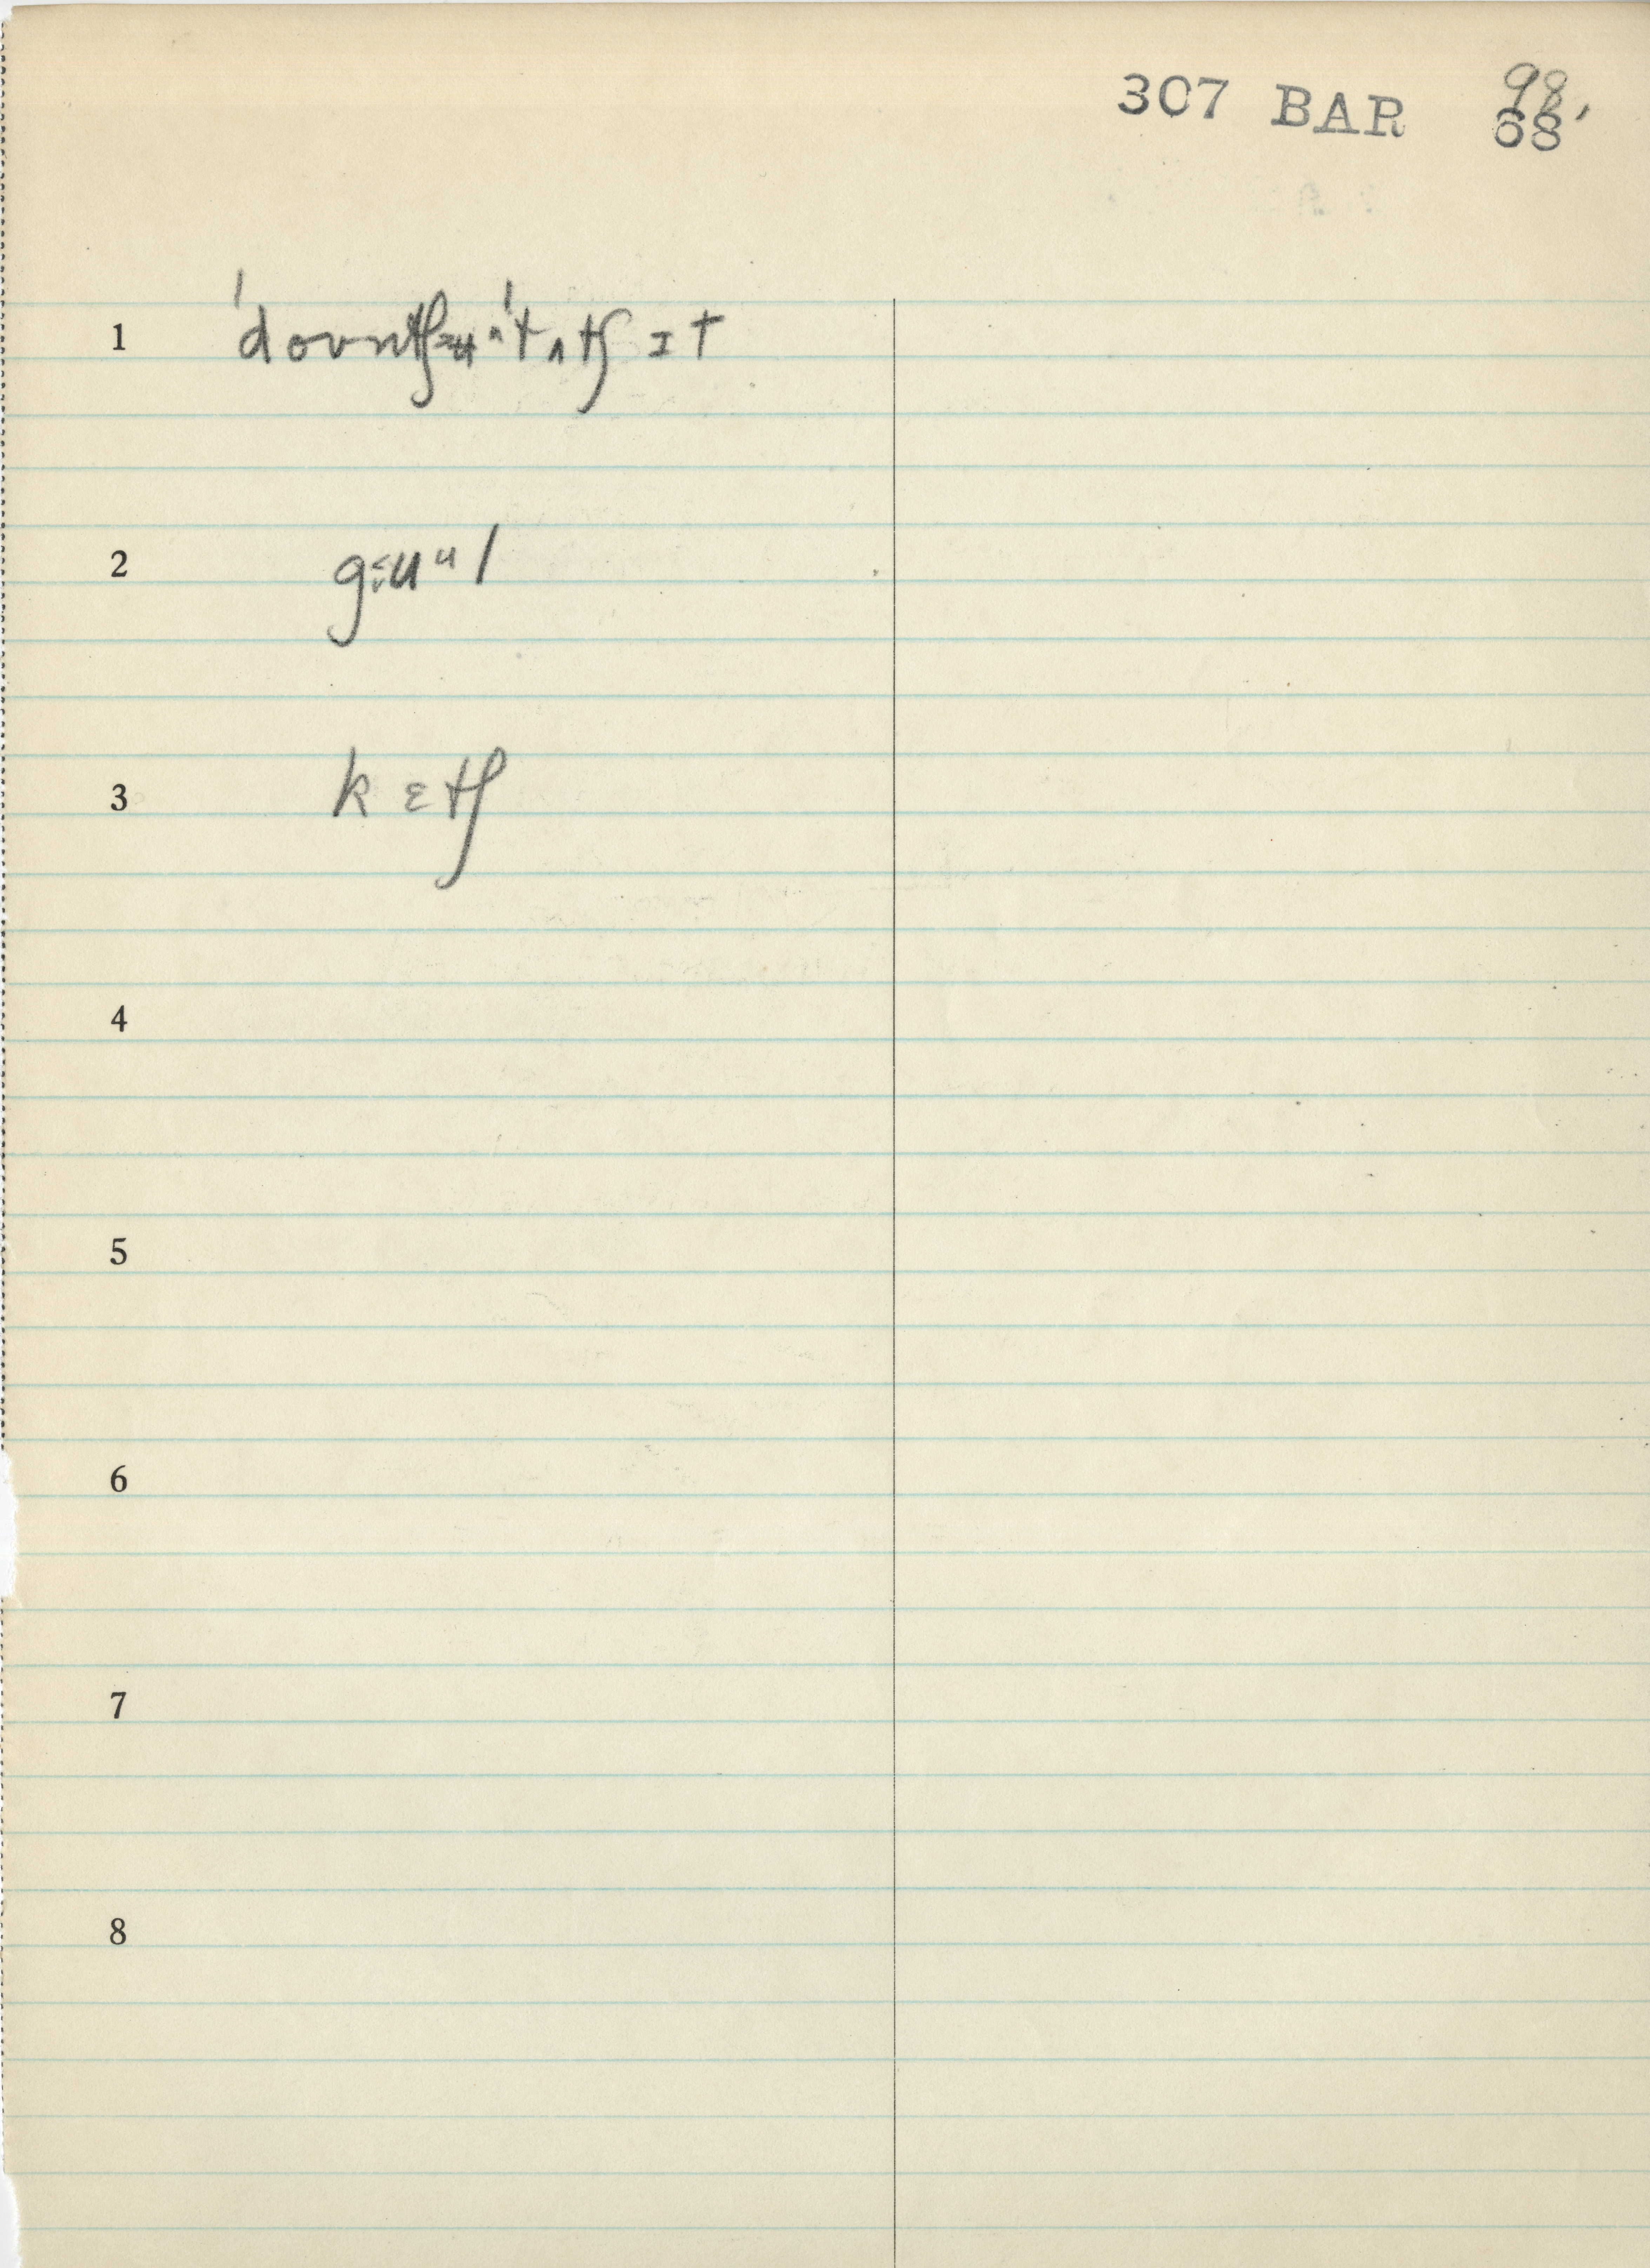 307 BAR 98,
68
1 ˈdoʊntʃ ˈtʌtʃ ɪt
2
3 k ɛtʃ
4
5
6
7
8